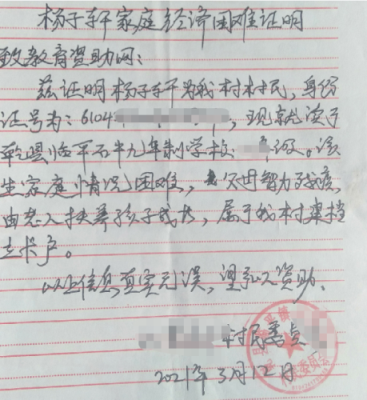 杨子轩家庭经济困难证明
致教育资助网：
兹证明杨子轩为我村村民，身份
证号为：6104，现就读于
乾县临平石牛九年制学校级。该
生家庭情况困难，父母智力残疾，
由老人抚养孩子成长，属于我村建档
立卡户。
以上信息真实无误，望予以资助。
村民委员
2021年3月12日